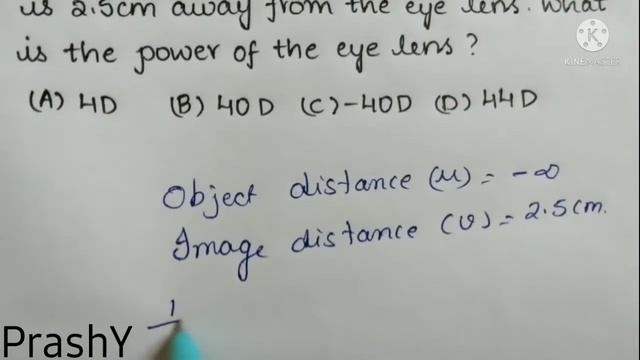 is 2.5cm away from the eye lens. What
is the power of the eye lens?
(A) 4D (B) 40D (C) -40D (D) 44D
Object distance (u) = -∞
Image distance (v) = 2.5cm.
1
PrashY
KINEMASTER